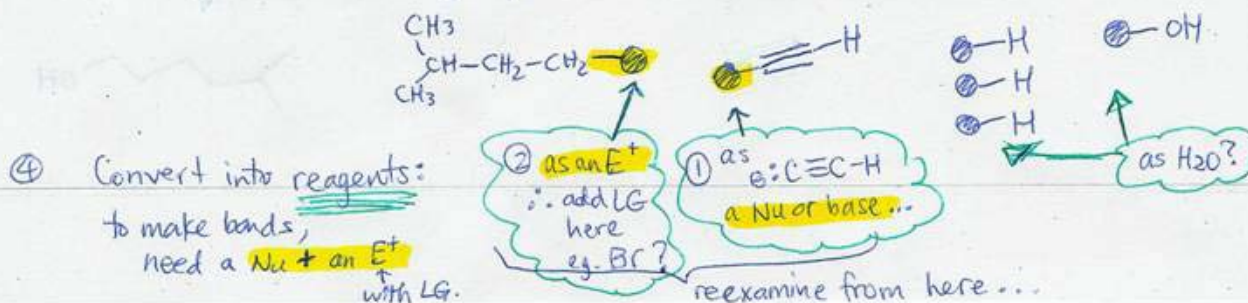 CH3
CH-CH2-CH2-
CH3
≡-H
-H
-H
-H
-OH
HO
④ Convert into reagents:
to make bonds,
need a Nu + an E+
with LG.
② as an E+
∴ add LG
here
eg. Br?
① as
⊖:C≡C-H
a Nu or base...
as H2O?
reexamine from here...